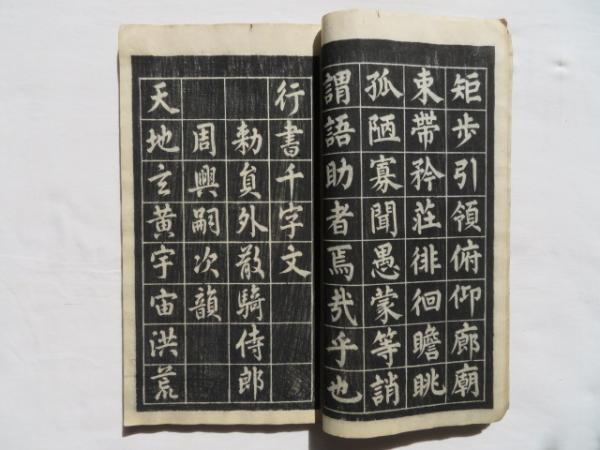 矩步引領俯仰廊廟
束帶矜莊徘徊瞻眺
孤陋寡聞愚蒙等誚
謂語助者焉哉乎也
行書千字文
勑貟外散騎侍郎
周興嗣次韻
天地玄黃宇宙洪荒